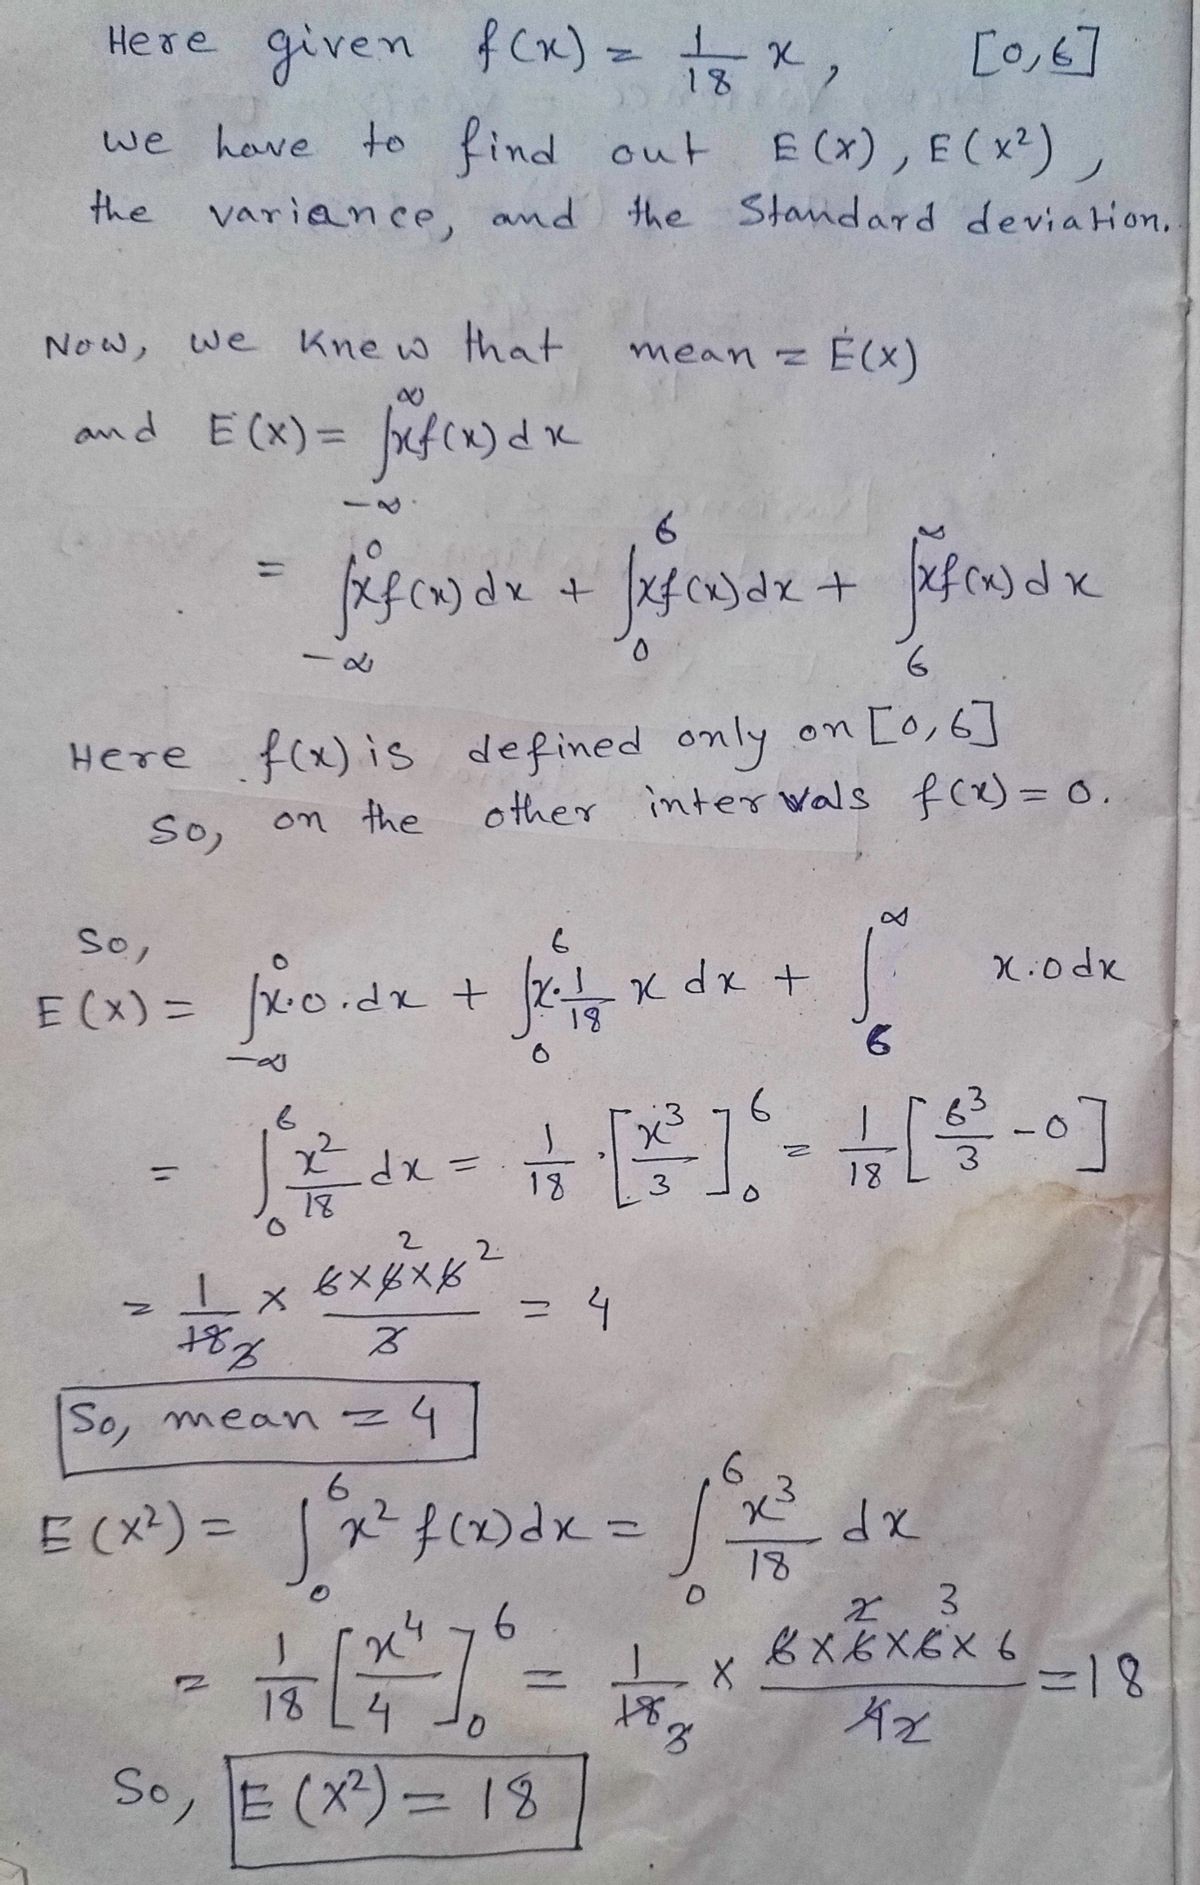 Here given f(x) = 1/18 x, [0,6]
we have to find out E(x), E(x²),
the variance, and the Standard deviation.
Now, we knew that mean = E(x)
and E(x) = ∫_{-∞}^{∞} xf(x)dx
= ∫_{-∞}^{0} xf(x)dx + ∫_{0}^{6} xf(x)dx + ∫_{6}^{∞} xf(x)dx
Here f(x) is defined only on [0,6]
So, on the other intervals f(x) = 0.
So,
E(x) = ∫_{-∞}^{0} x.0.dx + ∫_{0}^{6} x.1/18 x dx + ∫_{6}^{∞} x.0dx
= ∫_{0}^{6} x²/18 dx = 1/18 . [x³/3]_{0}^{6} = 1/18 [6³/3 - 0]
= 1/18 3 × 6×6 2×6 2/3 = 4
So, mean = 4
E(x²) = ∫_{0}^{6} x² f(x)dx = ∫_{0}^{6} x³/18 dx
= 1/18 [x⁴/4]_{0}^{6} = 1/18 3 × 6×6 2×6 3×6/4 2 = 18
So, E(x²) = 18